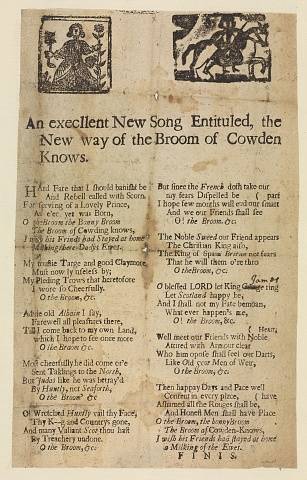 An execllent New Song Entituled, the
New way of the Broom of Cowden
Knows.
HArd Fate that I should banisht be
And Rebell called with Scorn,
For serving of a Lovely Prince,
As e'er yet was Born,
O the Broom the Bonny Broom
The Broom of Cowding knows,
I wish his Frinds had Stayed at home
Milking there Dadys Ewes.
My trustie Targe and good Claymore
Must now ly useless by;
My Pleding Trows that heretofore
I wore so Cheerfully.
O the Broom, &c.
Adiie old Albain I say,
Farewall all pleasures there,
Till I come back to my own Land,
which I hope to see once more
O the Broom &c.
Most cheerfully he did come o're
Sent Taklings to the North,
But Judas like he was betray'd
By Huntly, not Seaforth,
O the Broom &c
O! Wretched Huntly vail thy Face,
Thy K---g and Countrys gone,
And many Valiant Scot thou hast
By Treachery undone.
O the Broom. &c.
But since the French doth take our
my fears Dispelled be ( part
I hope few months will end our smart
And we our Friends shall see
O! the Broom. &c.
The Noble Sweed our Friend appears
The Christian King also,
The King of Spain Breton not fears
That he will them o're thro
O the Broom, &c.
James
O blessed LORD let King George ring
Let Scotland happy be,
And I shall not my Fate bemoan,
What ever happen's me,
O! the Broom, &c.
( Hear,
Well meet our Friends with Noble
Attired with Armour clear
Who him oppose shall feel our Darts,
Like Old year Men of Weir,
O the Broom, &c.
Then happay Days and Pace well
Consent in every place, ( have
Assumed all the Rouges shall be,
And Honest Men shall have Place
O the Broom, the bonny Broom
The Broom of Cowden-Knows,
I wish his Friends had stayed at home
a Milking of the Ewes.
FINIS.